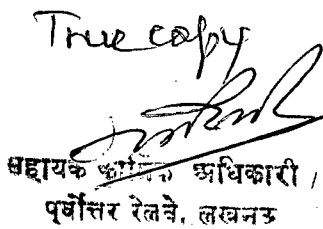 True copy
सहायक कार्मिक अधिकारी,
पूर्वोत्तर रेलवे, लखनऊ